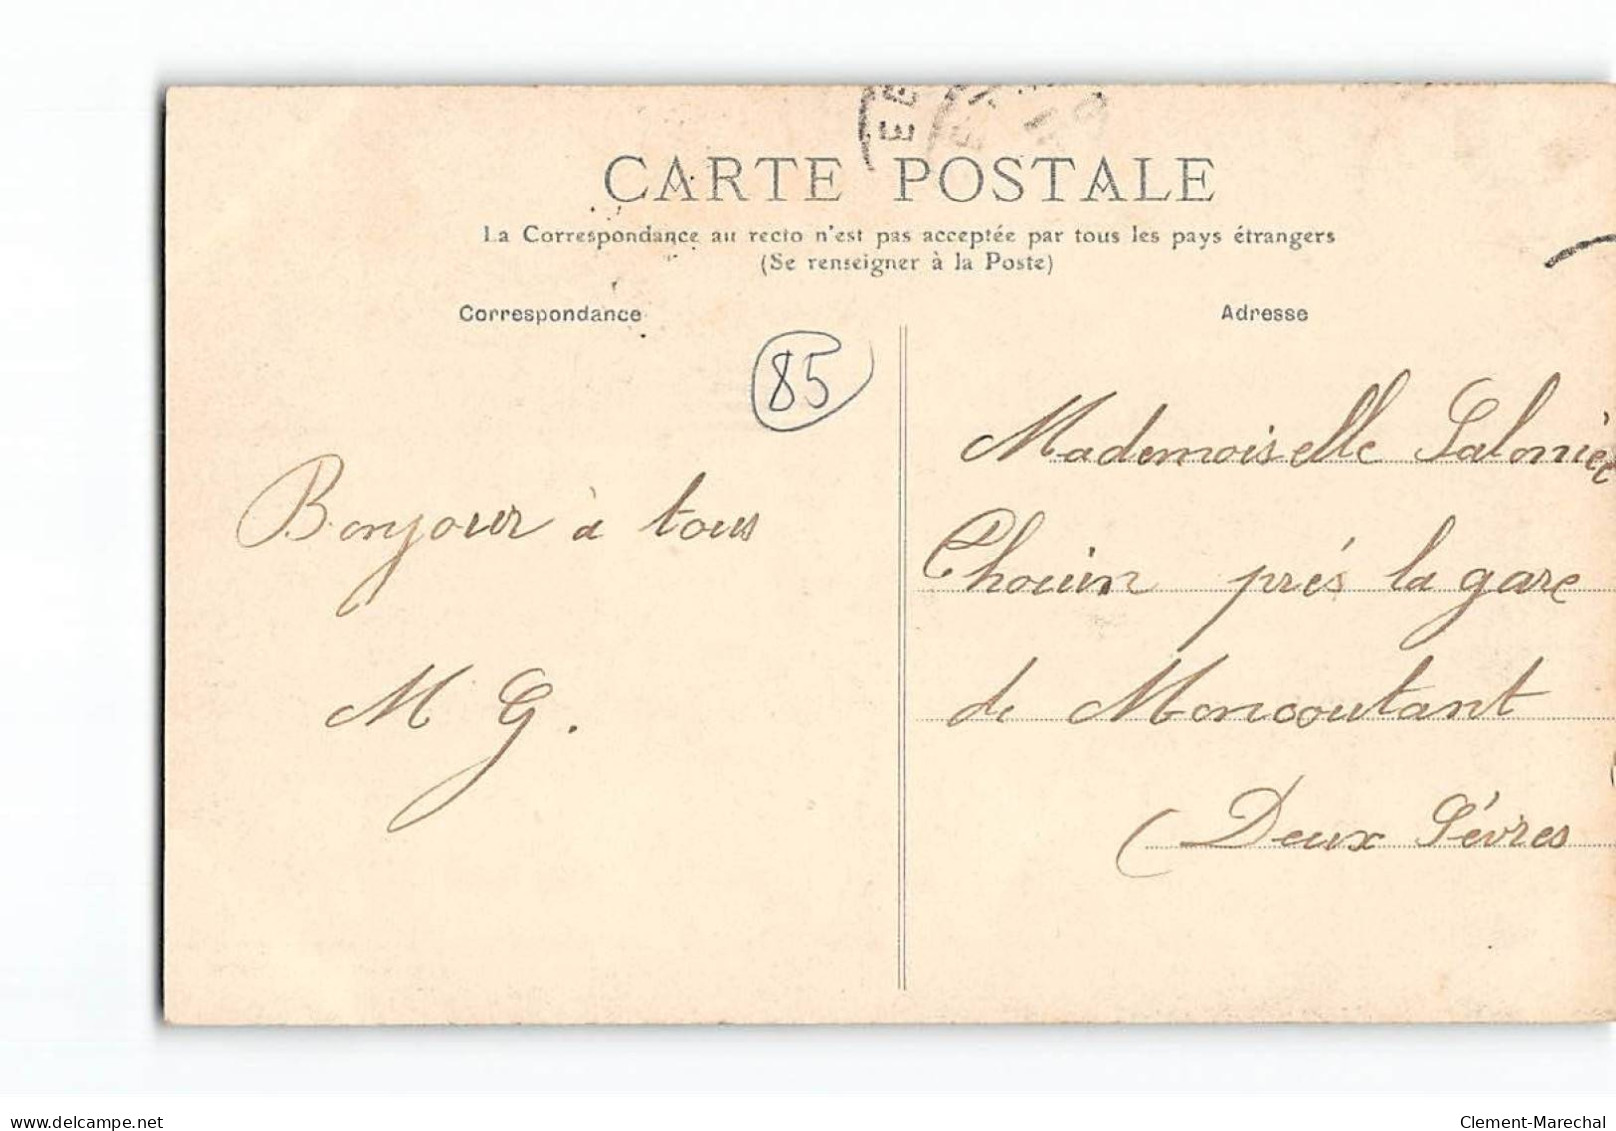 CARTE POSTALE
La Correspondance au recto n'est pas acceptée par tous les pays étrangers
(Se renseigner à la Poste)
Correspondance
Adresse
85
Bonjour à tous
M G.
Mademoiselle
Chouin près la gare
de Moncoutant
(Deux Sèvres
delcampe.net
Clement-Marechal